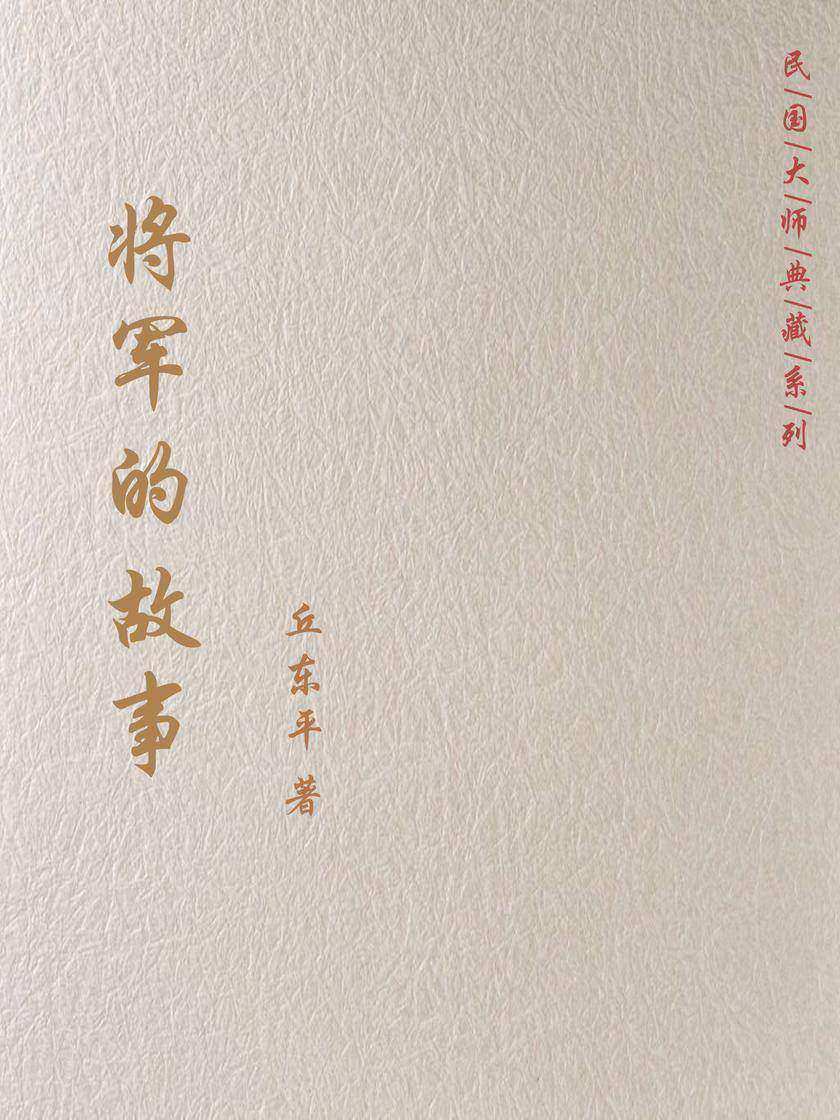 民/国/大/师/典/藏/系/列
将军的故事
丘东平 著